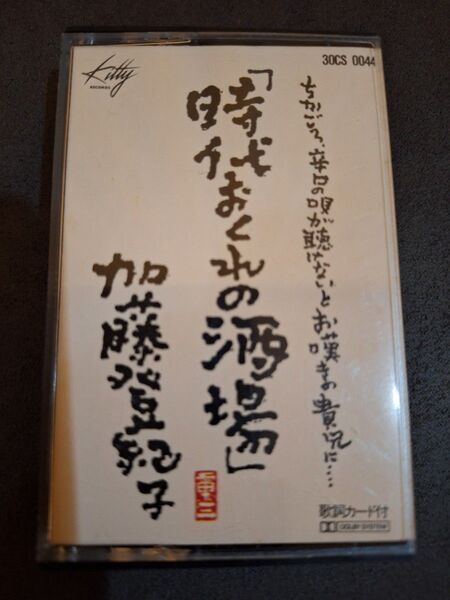 Kitty
RECORDS
30CS 0044
ちかごろ、辛口の唄が聴けないとお嘆きの貴兄に……
「時代おくれの酒場」
加藤登紀子
歌詞カード付
DOLBY SYSTEM